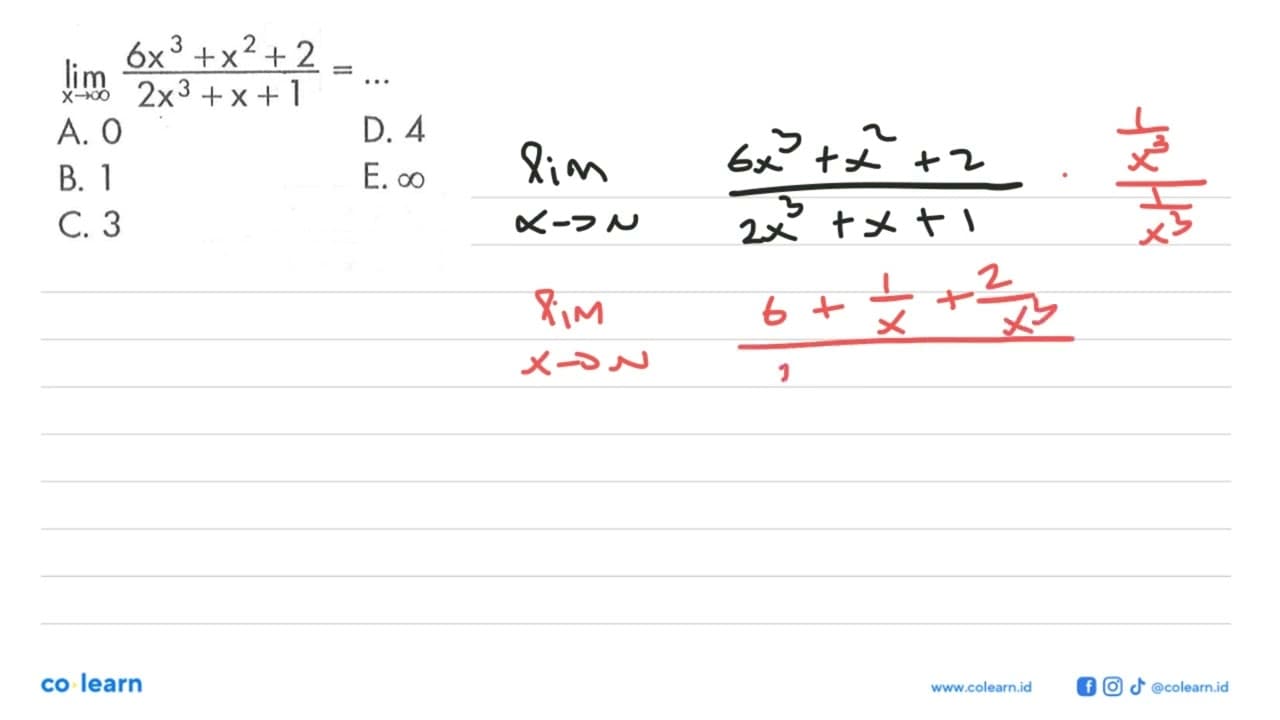 lim x→∞ 6x³ + x² + 2 / 2x³ + x + 1 = ...
A. 0 D. 4
B. 1 E. ∞
C. 3
lim x→∞ 6x³ + x² + 2 / 2x³ + x + 1 . 1/x³ / 1/x³
lim x→∞ 6 + 1/x + 2/x³
co learn
www.colearn.id @colearn.id